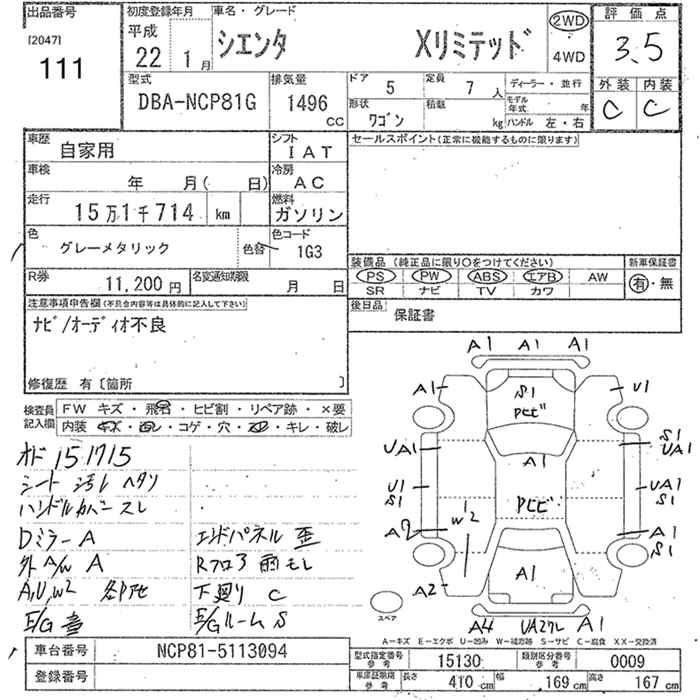 出品番号 初度登録年月 車名・グレード 2WD 評価点
[2047] 平成
111 22年 1月 シエンタ Xリミテッド 4WD 3.5
型式 排気量 ドア 5 定員 7人 ディーラー・並行 外装 内装
DBA-NCP81G 1496cc 形状 ワゴン 積載 kg モデル年式 年 C C
ハンドル 左・右
車歴 自家用 シフト IAT セールスポイント(正常に機能するものに限ります)
車検 年 月( 日) 冷房 AC
走行 15万1千714 km 燃料 ガソリン
色 グレーメタリック 色替 色コード 1G3
装備品 (純正品に限り○をつけてください) 新車保証書
R券 11,200円 名変通知期限 月 日 PS PW ABS エアB AW 有・無
SR ナビ TV カワ
注意事項申告欄(不具合内容等は具体的に記入して下さい) 後日品 保証書
ナビ/オーディオ不良
修復歴 有〔箇所 〕
検査員記入欄 FW キズ・飛石・ヒビ割・リペア跡・×要
内装 キズ・汚レ・コゲ・穴・スレ・キレ・破レ
A1 A1 A1
A1 S1 U1
ピビ
オド 151715
シート 汚レ ヘタリ UA1 S1
UA1
ハンドルカバースレ A1
U1 S1 ピビ UA1 S1
Dミラー A エンドパネル 歪 W2 A1 S1
外A/W A Rフロア 雨モレ
A,U,W2 各部色 下廻り C A2 A1
E/G 音 E/Gルーム S スペア A4 UA2クレ A1
A-キズ E-エクボ U-凹み W-補修跡 S-サビ C-腐食 XX-交換済
車台番号 NCP81-5113094 型式指定番号 参考 15130 類別区分番号 参考 0009
登録番号 車庫証明用 参考 長さ 410cm 幅 169cm 高さ 167cm